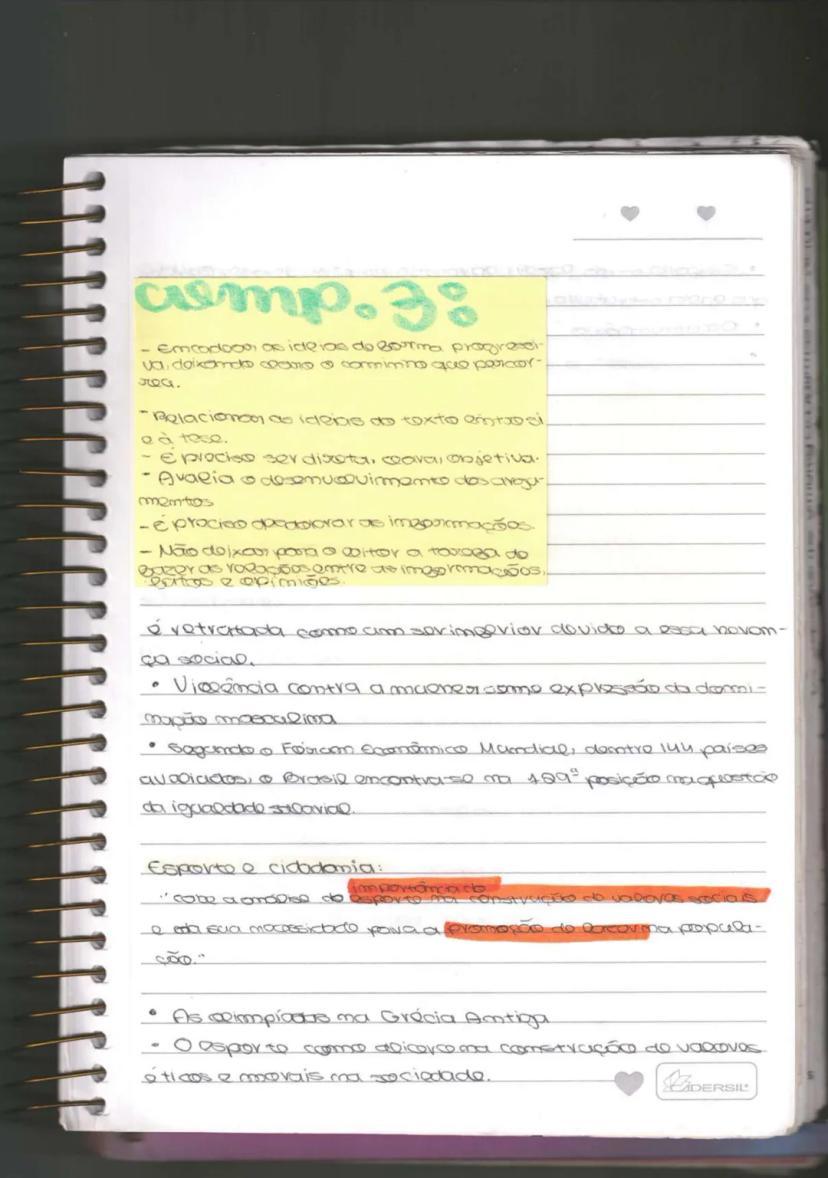 comp. 3:
- Encadear as ideias de forma progressi-
va, deixando claro o caminho que percor-
rerá.
- Relacionar as ideias do texto entre si
e à tese.
- É preciso ser direta, clara, objetiva.
- Avalia o desenvolvimento dos argu-
mentos
- É preciso elaborar as informações.
- Não deixar para o leitor a tarefa de
fazer as relações entre as informações,
fatos e opiniões.
é retratada como um ser inferior devido a essa heran-
ça social.
• Violência contra a mulher como expressão da domi-
nação masculina
• Segundo o Fórum Econômico Mundial, dentre 144 países
avaliados, o Brasil encontra-se na posição na questão
da igualdade salarial.
Esporte e cidadania:
"Cabe a análise da importância do
esporte na construção de valores sociais
e da sua necessidade para a promoção do lazer na popula-
ção."
• As olimpíadas na Grécia Antiga
• O esporte como alicerce na construção de valores
éticos e morais na sociedade.
IDERSIL